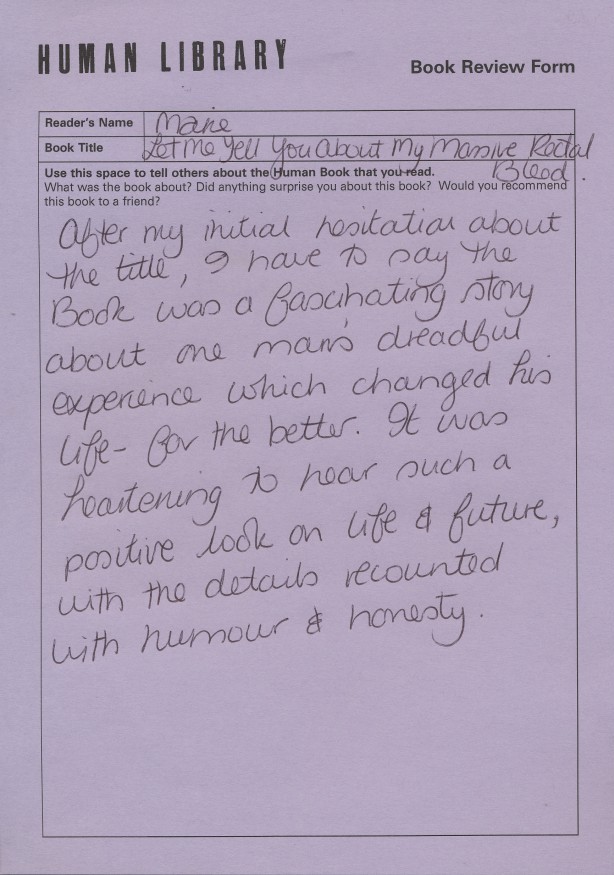 HUMAN LIBRARY
Book Review Form
Reader's Name Marie
Book Title Let Me Yell You About My Massive Rectal
Bleed.
Use this space to tell others about the Human Book that you read.
What was the book about? Did anything surprise you about this book? Would you recommend
this book to a friend?
After my initial hesitation about
the title, I have to say the
Book was a fascinating story
about one man's dreadful
experience which changed his
life - for the better. It was
heartening to hear such a
positive look on life & future,
with the details recounted
with humour & honesty.